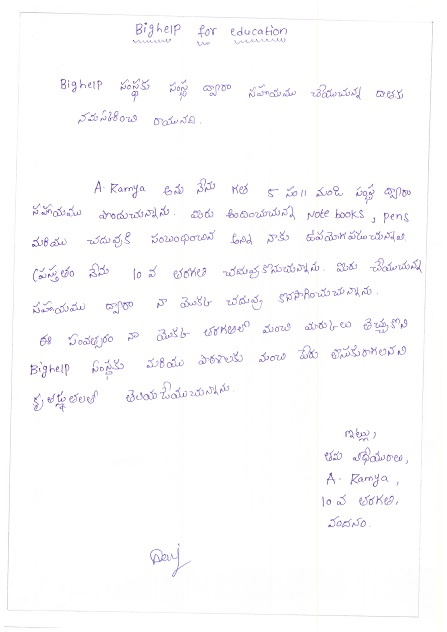 Bighelp for education
Bighelp సంస్థకు సంస్థ ద్వారా సహాయము చేయుచున్న దాతకు
నమస్కరించి రాయునది.
A. Ramya అను నేను గత 5 సం॥ నుండి సంస్థ ద్వారా
సహాయము పొందుచున్నాను. మీరు అందించుచున్న Note books, pens
మరియు చదువుకి సంబంధించిన అన్ని నాకు ఉపయోగపడుచున్నవి.
ప్రస్తుతం నేను 10 వ తరగతి చదువుకొనుచున్నాను. మీరు చేయుచున్న
సహాయము ద్వారా నా యొక్క చదువు కొనసాగించుచున్నాను.
ఈ సంవత్సరం నా యొక్క తరగతిలో మంచి మార్కులు తెచ్చుకొని
Bighelp సంస్థకు మరియు పాఠశాలకు మంచి పేరు తీసుకురాగలనని
కృతజ్ఞతలతో తెలియచేయుచున్నాను
ఇట్లు,
తమ విధేయురాలు,
A. Ramya,
10 వ తరగతి,
వందనం.